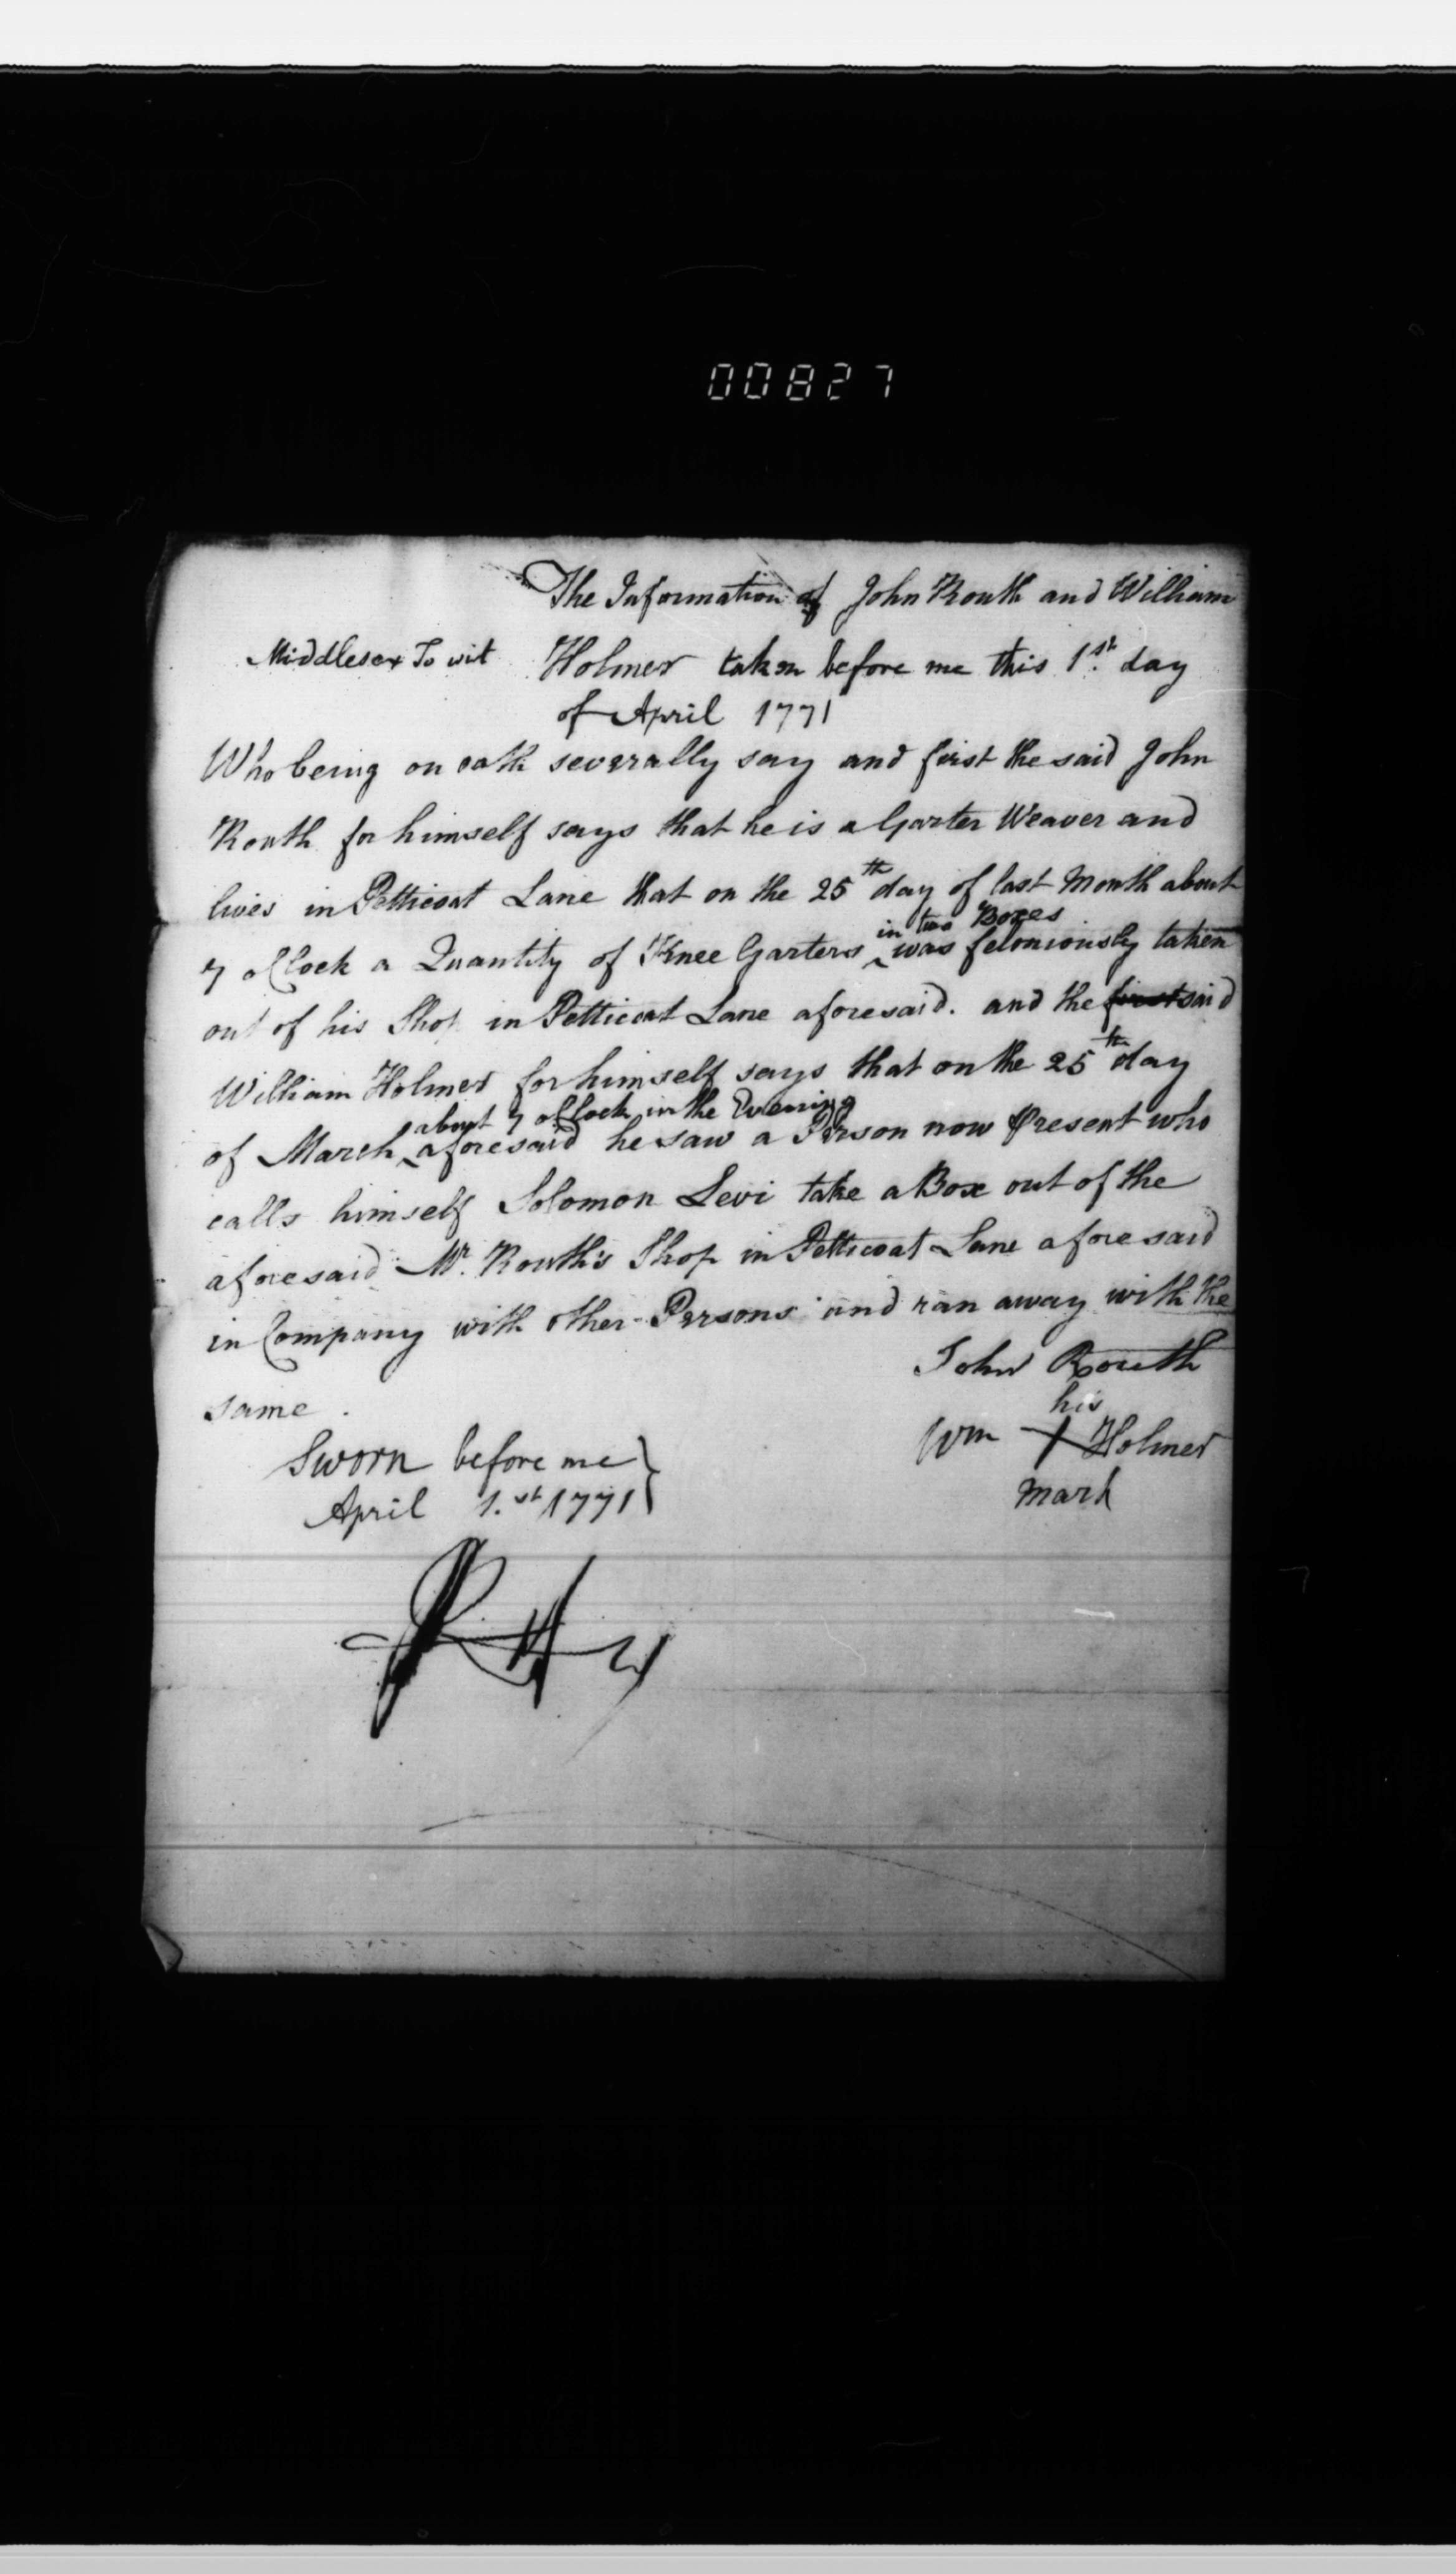 00827
The Information of John Routh and William
Middlesex To wit Holmes taken before me this 1st. day
of April 1771
Who being on oath severally say and first the said John
Routh for himself says that he is a Garter Weaver and
lives in Petticoat Lane that on the 25th day of last Month about
in two Boxes
7 oClock a Quantity of Knee Garters ‸ was feloniously taken
out of his Shop in Petticoat Lane aforesaid. and the first said
William Holmes for himself says that on the 25th day
about 7 oClock in the Evening
of March ‸ aforesaid he saw a Person now present who
calls himself Solomon Levi take a Box out of the
aforesaid Mr. Routh's Shop in Petticoat Lane aforesaid
in Company with other Persons and ran away with the
same.
John Routh
his
Wm X Holmes
mark
Sworn before me
April 1.st 1771